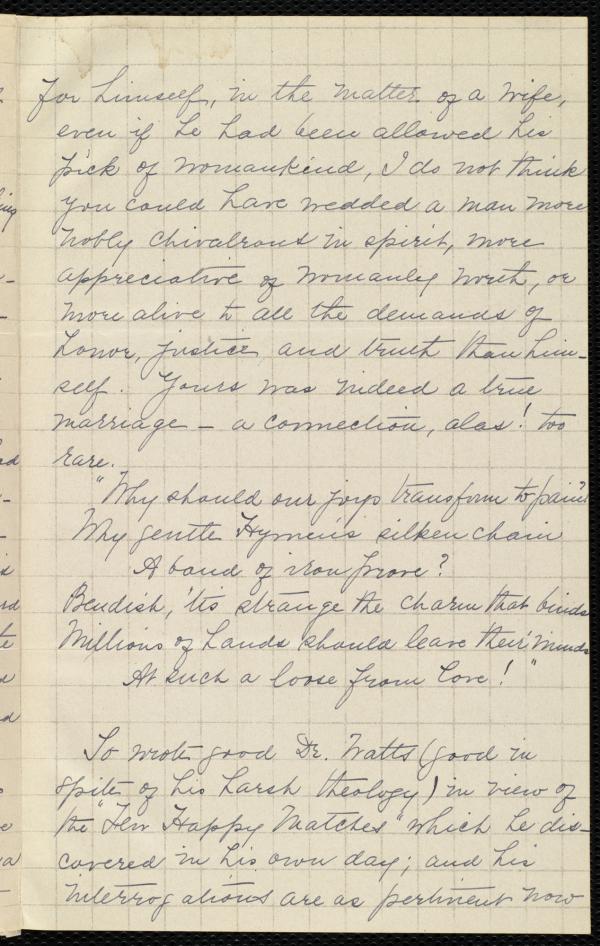 for himself, in the matter of a wife,
even if he had been allowed his
pick of womankind, I do not think
you could have wedded a man more
nobly chivalrous in spirit, more
appreciative of womanly worth, or
more alive to all the demands of
honor, justice and truth than him-
self. Yours was indeed a true
marriage – a connection, alas! too
rare.
"Why should our joys transform to pain?
Why gentle Hymen's silken chain
A band of iron prove?
Bendish, 'tis strange the charm that binds
Millions of hands should leave their minds
At such a loose from love!"
So wrote good Dr. Watts (good in
spite of his harsh theology) in view of
the "Few Happy Matches" which he dis-
covered in his own day; and his
interrogations are as pertinent now